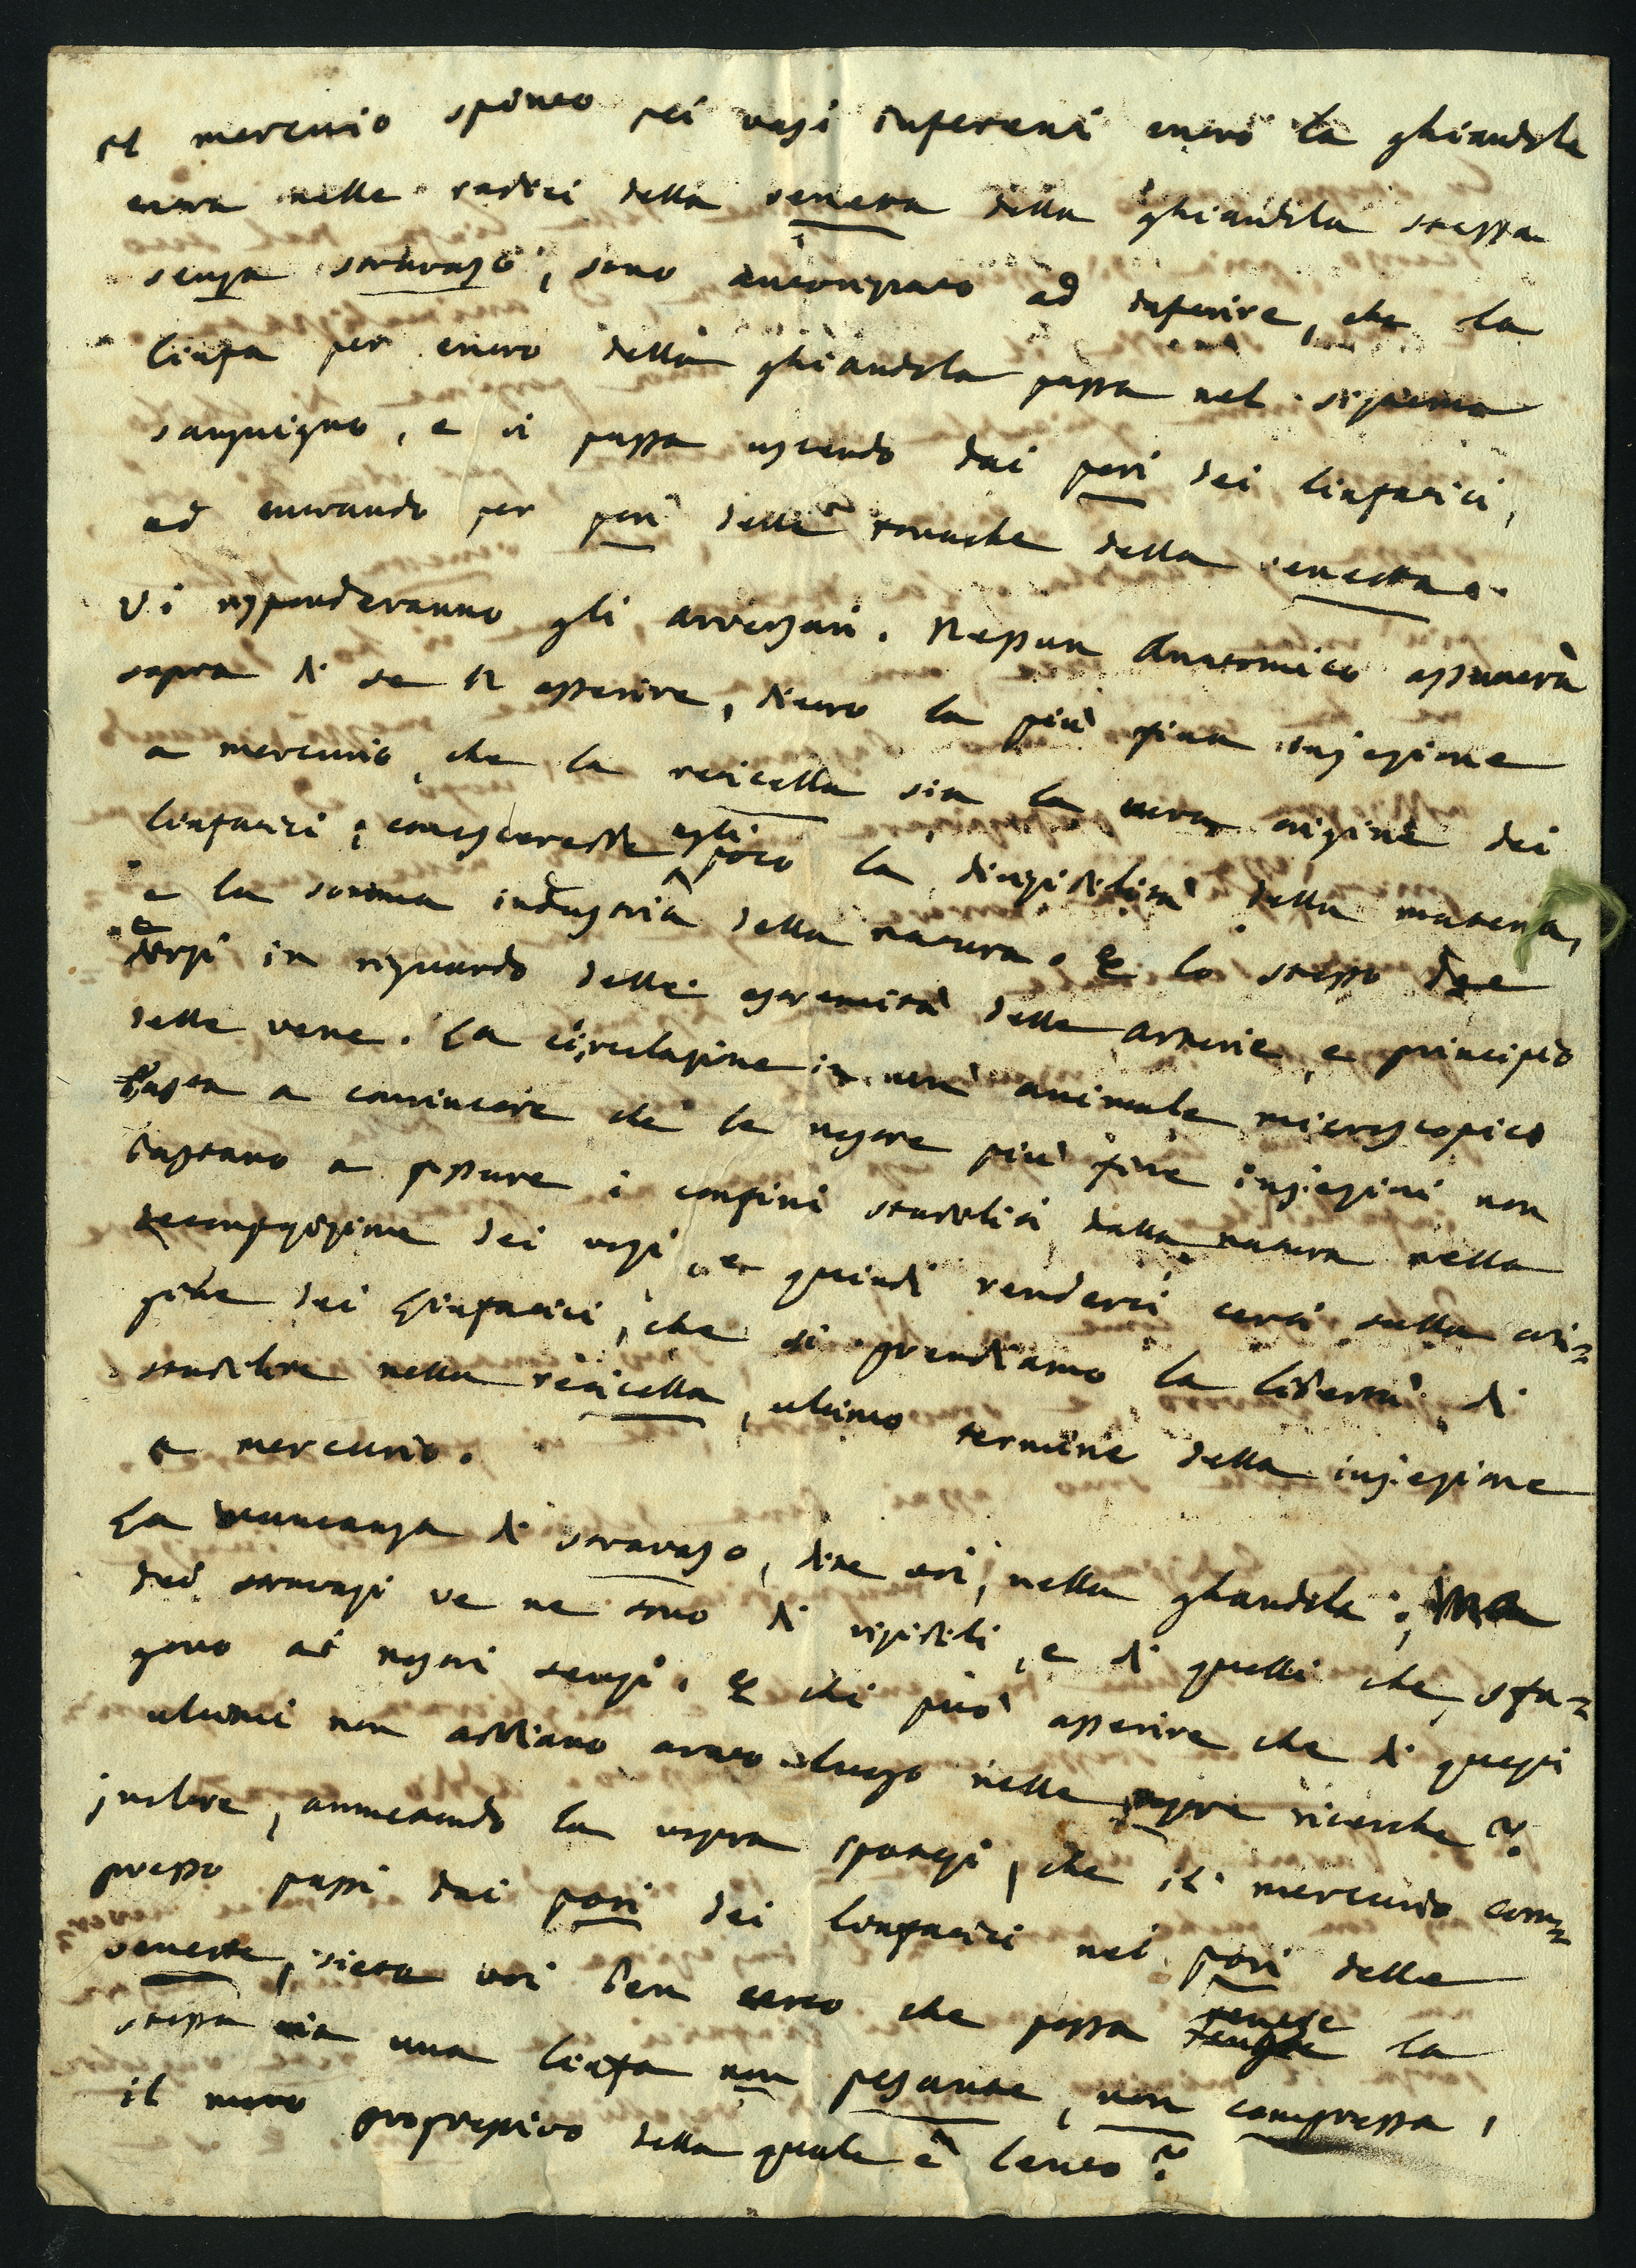 il mercurio spinto pei vasi inferenti entro la ghiandola
entra nelle radici della venetta della ghiandola stessa
senza stravaso, sono autorizzato ad inferire, che la
linfa per entro della ghiandola passa nel sistema
sanguigno, e vi passa uscendo dai pori dei linfatici,
ed entrando per pori delle tonache della venetta.
Vi risponderanno gli avversari. Nessun Anatomico assumerà
sopra di se l' asserire, dietro la più fina injezione
a mercurio, che la reticella sia la vera origine dei
linfatici; conoscerebbe egli poco la divisibilità della materia,
e la somma industria della natura. E lo stesso dee
dirsi in riguardo delle estremità delle arterie, e principio
delle vene. La circolazione in un animale microscopico
basta a convincere che le nostre più fine injezioni non
bastano a passare i confini stabiliti dalla natura nella
decomposizione dei vasi, e quindi renderci certi sulla ori=
gine dei Linfatici, che si prendiamo la libertà di
stabilire nella reticella, ultimo termine della injezione
a mercurio.
La mancanza di stravaso, dite voi, nella ghiandola; Ma
dei stravasi ve ne sono di visibili, e di quelli che sfu=
gono ai nostri sensi. E chi può asserire che di questi
ultimi non abbiano avuto luogo nelle vostre ricerche?
Inoltre, ammettendo la vostra ipotesi, che il mercurio com=
presso passi dai pori dei linfatici nei pori delle
venette, siete voi ben certo che possa tenere la
stessa via una linfa non pesante, non compressa,
il moto progressivo della quale è lento?